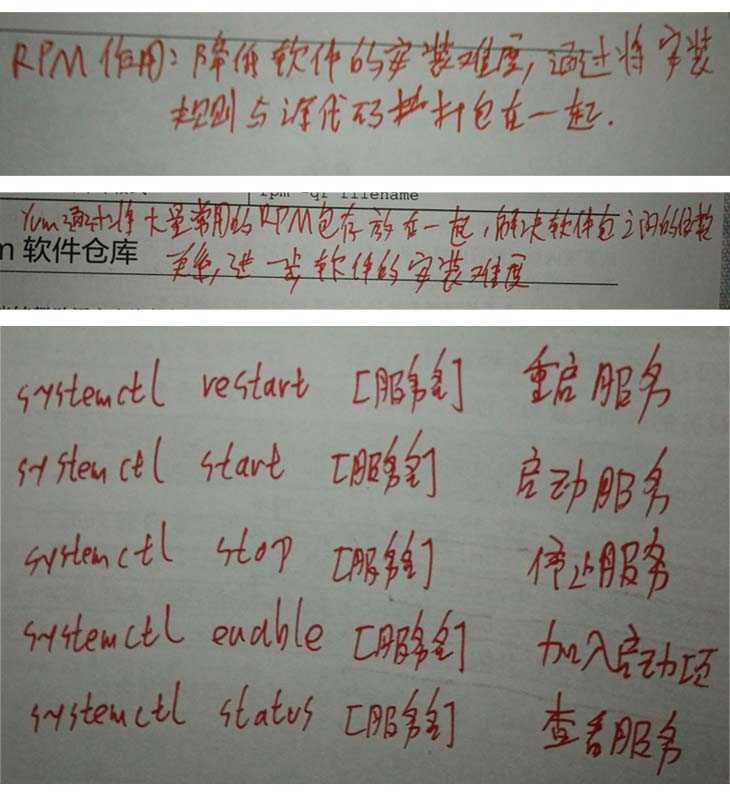 RPM 作用：降低软件的安装难度，通过将安装
规则与源代码打包在一起.
rpm -qf filename
Yum 通过将大量常用的RPM包存放在一起，解决软件包之间的依赖
软件仓库
关系,进一步软件的安装难度
systemctl restart [服务名] 重启服务
systemctl start [服务名] 启动服务
systemctl stop [服务名] 停止服务
systemctl enable [服务名] 加入启动项
systemctl status [服务名] 查看服务